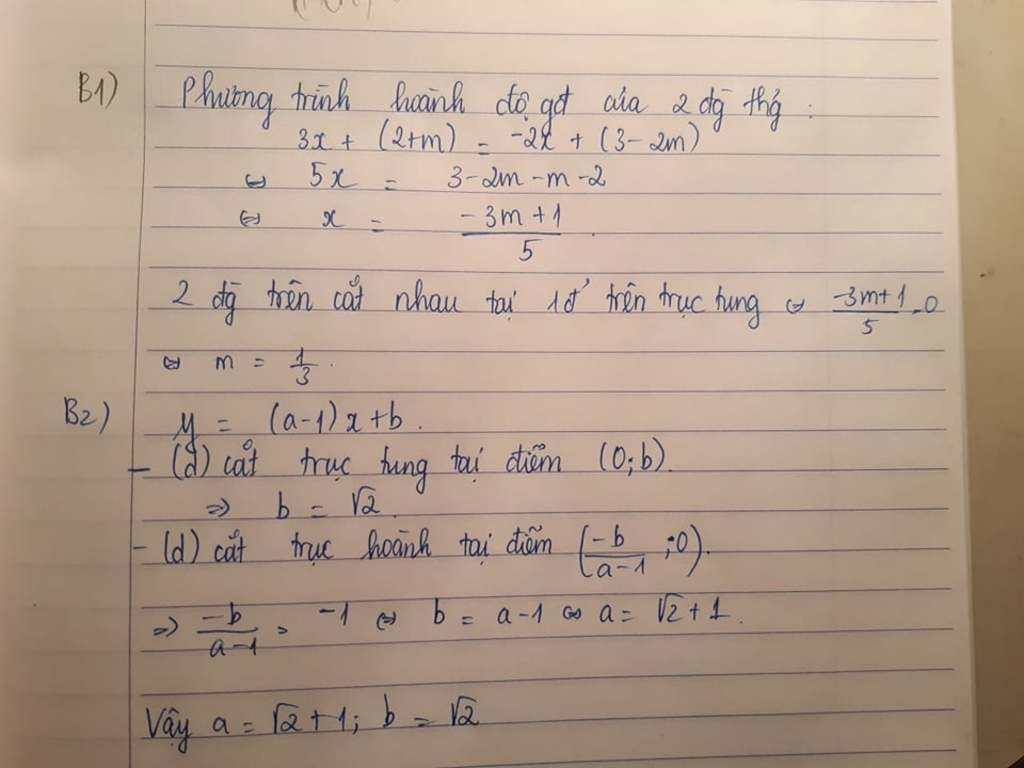 B1) Phương trình hoành độ gđ của 2 đg thg :
3x + (2+m) = -2x + (3-2m)
⇔ 5x = 3-2m-m-2
⇔ x = (-3m+1)/5.
2 đg trên cắt nhau tại 1đ' trên trục tung ⇔ (-3m+1)/5 = 0
⇔ m = 1/3.
B2) y = (a-1)x+b.
- (d) cắt trục tung tại điểm (0;b).
⇒ b = √2.
- (d) cắt trục hoành tại điểm (-b/(a-1) ;0).
⇒ -b/(a-1) = -1 ⇔ b = a-1 ⇔ a = √2+1.
Vậy a = √2+1; b = √2